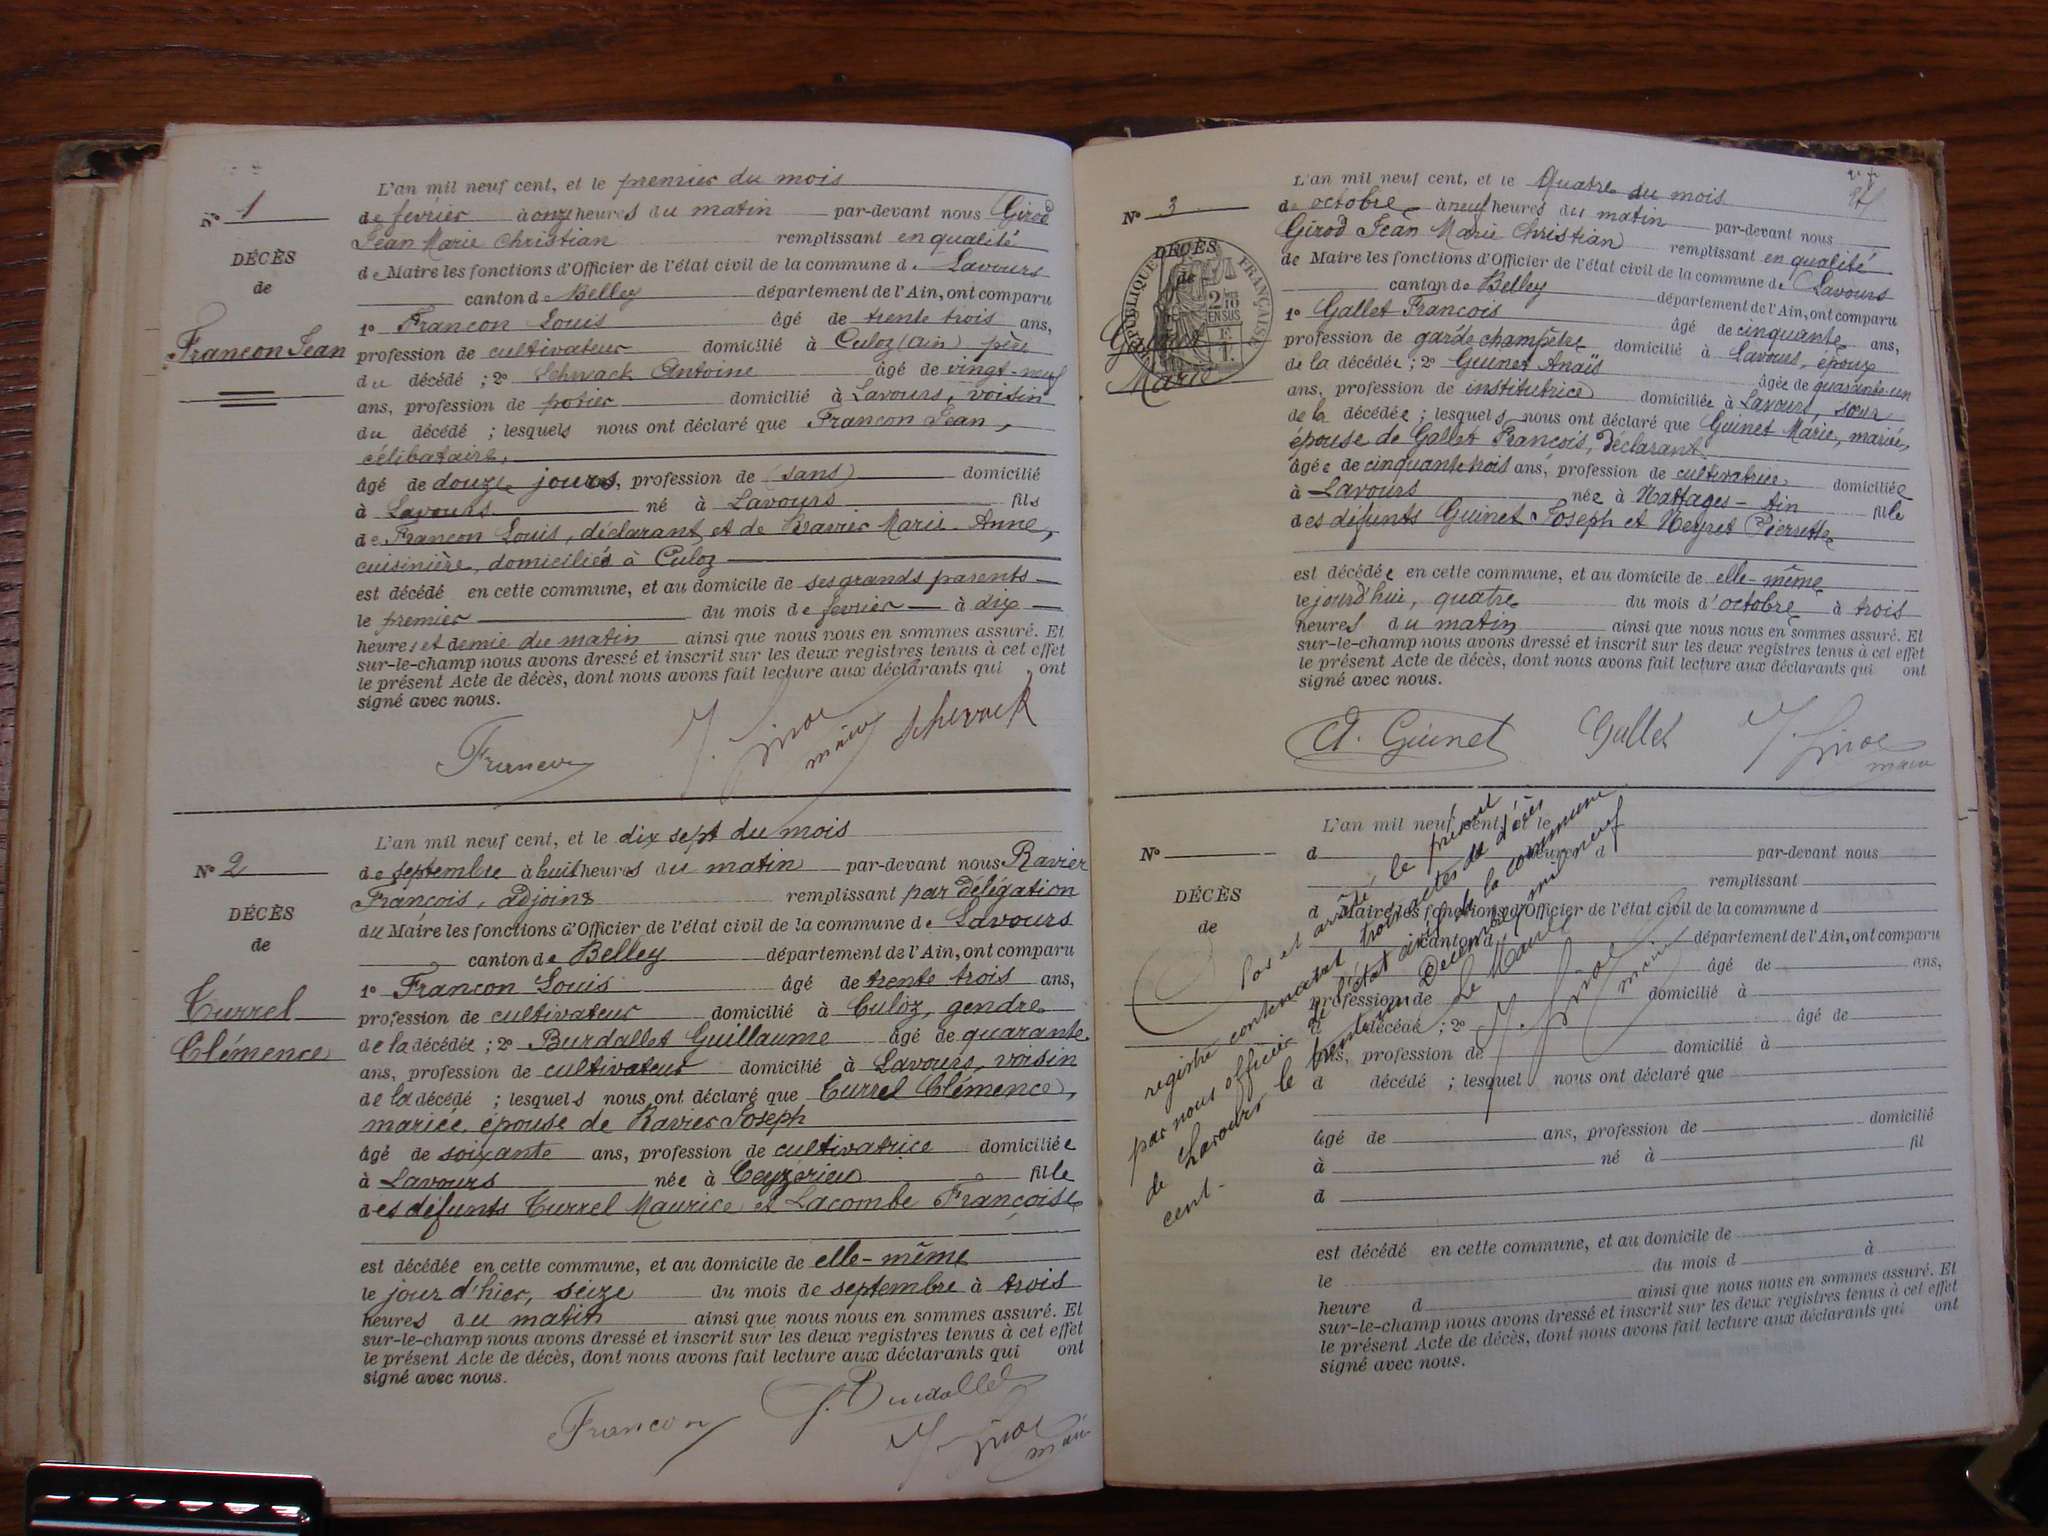 N° 1
DÉCÈS
de
Francon Jean
L'an mil neuf cent, et le premier du mois
de février à onze heures du matin par-devant nous Girod
Jean Marie Christian remplissant en qualité
de Maire les fonctions d'Officier de l'état civil de la commune de Lavours
canton de Belley département de l'Ain, ont comparu
1° Francon Louis âgé de trente trois ans,
profession de cultivateur domicilié à Culoz (ain) père
du décédé ; 2° Schwack Antoine âgé de vingt-neuf
ans, profession de potier domicilié à Lavours, voisin
du décédé ; lesquels nous ont déclaré que Francon Jean,
célibataire,
âgé de douze jours, profession de (sans) domicilié
à Lavours né à Lavours fils
de Francon Louis, déclarant et de Ravier Marie-Anne,
cuisinière, domiciliés à Culoz
est décédé en cette commune, et au domicile de ses grands parents
le premier du mois de février à dix
heures et demie du matin ainsi que nous nous en sommes assuré. Et
sur-le-champ nous avons dressé et inscrit sur les deux registres tenus à cet effet
le présent Acte de décès, dont nous avons fait lecture aux déclarants qui ont
signé avec nous.
Francon J. Girod maire Schwack
N° 2
DÉCÈS
de
Turrel
Clémence
L'an mil neuf cent, et le dix sept du mois
de septembre à huit heures du matin par-devant nous Ravier
François, adjoint remplissant par délégation
du Maire les fonctions d'Officier de l'état civil de la commune de Lavours
canton de Belley département de l'Ain, ont comparu
1° Francon Louis âgé de trente trois ans,
profession de cultivateur domicilié à Culoz, gendre
de la décédée ; 2° Burdallet Guillaume âgé de quarante
ans, profession de cultivateur domicilié à Lavours, voisin
de la décédé ; lesquels nous ont déclaré que Turrel Clémence,
mariée, épouse de Ravier Joseph
âgé de soixante ans, profession de cultivatrice domiciliée
à Lavours née à Ceyzérieu fille
des défunts Turrel Maurice et Lacombe Françoise
est décédée en cette commune, et au domicile de elle-même
le jour d'hier, seize du mois de septembre à trois
heures du matin ainsi que nous nous en sommes assuré. Et
sur-le-champ nous avons dressé et inscrit sur les deux registres tenus à cet effet
le présent Acte de décès, dont nous avons fait lecture aux déclarants qui ont
signé avec nous.
Francon G. Burdallet
J. Girod maire
N° 3
DÉCÈS
de
Marie
RÉPUBLIQUE FRANÇAISE
2/10 EN SUS
L'an mil neuf cent, et le Quatre du mois
de octobre à neuf heures du matin par-devant nous
Girod Jean Marie Christian remplissant en qualité
de Maire les fonctions d'Officier de l'état civil de la commune de Lavours
canton de Belley département de l'Ain, ont comparu
1° Gallet François âgé de cinquante ans,
profession de garde champêtre domicilié à Lavours, époux
de la décédée ; 2° Guinet Anaïs âgée de quarante-un
ans, profession de institutrice domiciliée à Lavours, sœur
de la décédée ; lesquels nous ont déclaré que Guinet Marie, mariée,
épouse de Gallet François, déclarant
âgée de cinquante trois ans, profession de cultivatrice domiciliée
à Lavours née à Nattages - Ain fille
des défunts Guinet Joseph et Neyret Pierrette
est décédée en cette commune, et au domicile de elle-même
le jourd'hui, quatre du mois d'octobre à trois
heures du matin ainsi que nous nous en sommes assuré. Et
sur-le-champ nous avons dressé et inscrit sur les deux registres tenus à cet effet
le présent Acte de décès, dont nous avons fait lecture aux déclarants qui ont
signé avec nous.
A. Guinet Gallet J. Girod maire
N°
DÉCÈS
de
L'an mil neuf cent, et le
d heures d par-devant nous
remplissant
d Maire les fonctions d'Officier de l'état civil de la commune d
canton d département de l'Ain, ont comparu
âgé de ans,
profession de domicilié à
décédé ; 2° âgé de
ans, profession de domicilié à
d décédé ; lesquel nous ont déclaré que
âgé de ans, profession de domicilié
à né à fil
d
est décédé en cette commune, et au domicile de
le du mois d à
heure d ainsi que nous nous en sommes assuré. Et
sur-le-champ nous avons dressé et inscrit sur les deux registres tenus à cet effet
le présent Acte de décès, dont nous avons fait lecture aux déclarants qui ont
signé avec nous.
Clos et arrêté, le présent
registre contenant trois actes de décès
par nous officier de l'état civil de la commune
de Lavours le trente un Décembre mil neuf
cent.
Le Maire
J. Girod maire